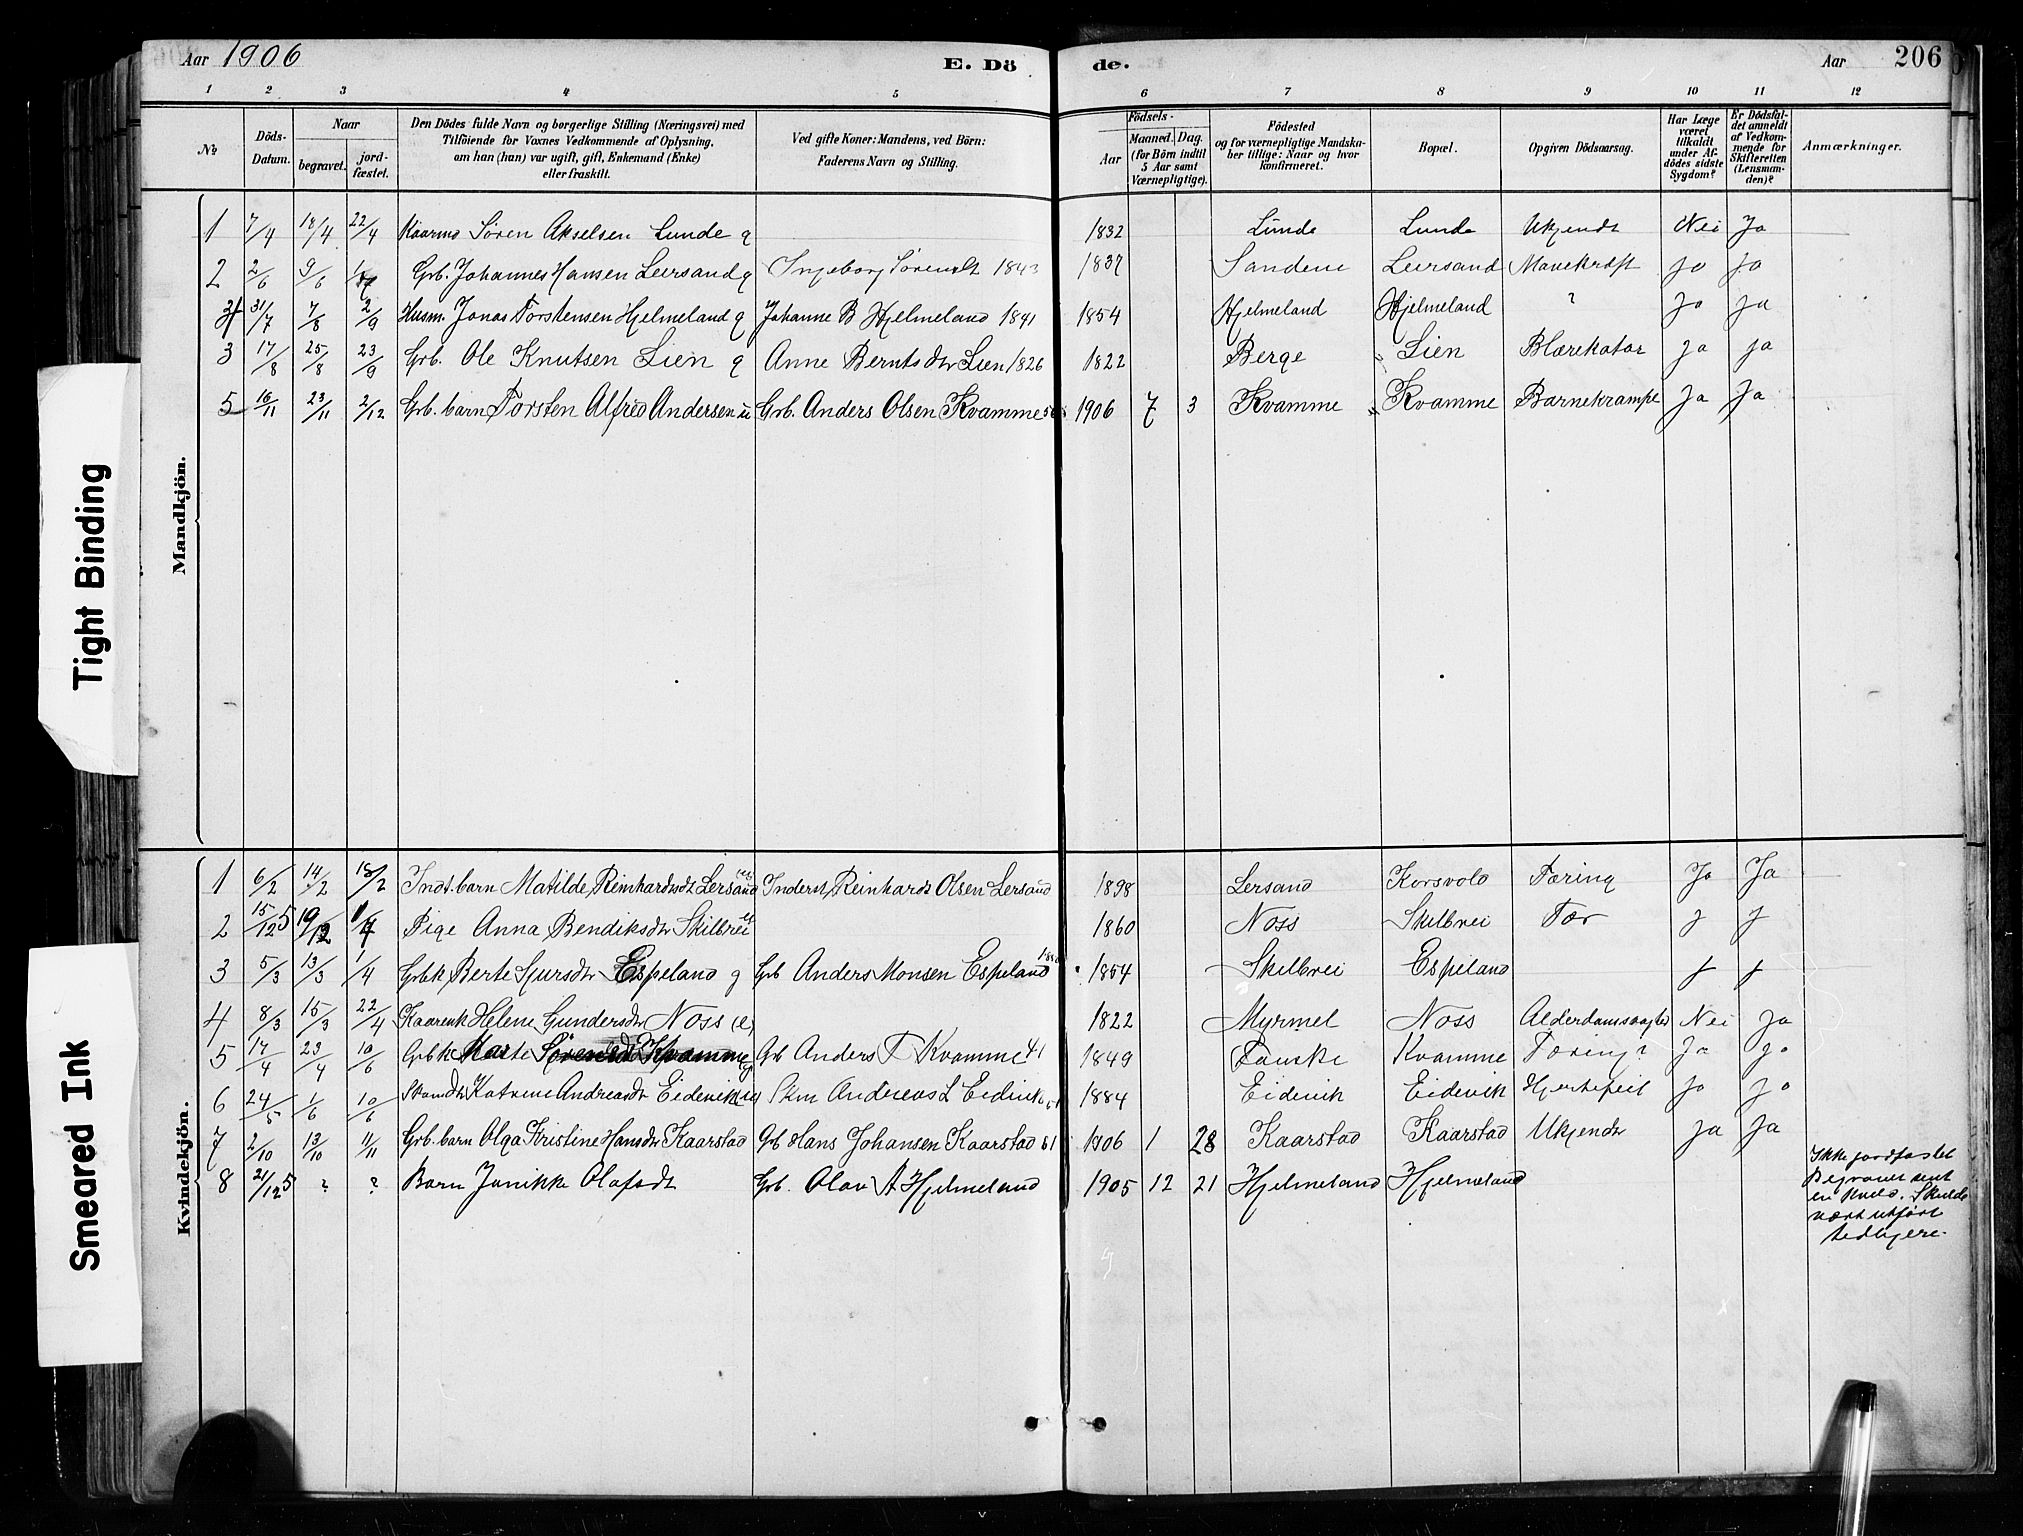 Aar 1906 E. Dö de. Aar 206
1 2 3 4 5 6 7 8 9 10 11 12
№
Döds-Datum.
Naar
begravet.
jord-fæstet.
Den Dödes fulde Navn og borgerlige Stilling (Næringsvei) med
Tilföiende for Voxnes Vedkommende af Oplysning,
om han (hun) var ugift, gift, Enkemand (Enke)
eller fraskilt.
Ved gifte Koner: Mandens, ved Börn:
Faderens Navn og Stilling.
Födsels-
Aar
Maaned. Dag.
(for Börn indtil
5 Aar samt
Værnepligtige).
Födested
og for værnepligtige Mandska-
ber tillige: Naar og hvor
konfirmeret.
Bopæl.
Opgiven Dödsaarsag.
Har Læge
været
tilkaldt
under Af-
dödes sidste
Sygdom?
Er Dödsfal-
det anmeldt
af Vedkom-
mende for
Skifteretten
(Lensman-
den)?
Anmærkninger.
Mandkjön.
1 7/4 18/4 22/4 Kaarmd Sören Akselsen Lunde g 1832 Lunde Lunde Ukjendt Nei Ja
2 2/6 9/6 Grb. Johannes Hansen Leersand g Ingeborg Sörensdt 1843 1837 Sandene Leersand Mavekræft Ja Ja
31/7 7/8 2/9 Husm. Jonas Torstensen Hjelmeland g Johanne B Hjelmeland 1841 1854 Hjelmeland Hjelmeland ? Ja Ja
3 17/8 25/8 23/9 Grb. Ole Knutsen Lien g Anne Berntsdtr Lien 1826 1822 Berge Lien Blærekatar Ja Ja
5 16/11 23/11 2/12 Grb. barn Torsten Alfred Andersen Grb. Anders Olsen Kvamme 1906 7 3 Kvamme Kvamme Barnekrampe Ja Ja
Kvindekjön.
1 6/2 14/2 18/2 Indt. barn Matilde Reinhardsdt Lersand Inderst Reinhardt Olsen Lersand 1898 Lersand Korsvold Tæring Ja Ja
2 15/12 5 Pige Anna Bendiksdtr Skilbrei 1860 Noss Skilbrei Tær J J
3 5/3 13/3 1/4 Grbk Berte Sjursdtr Espeland g Grb Anders Monsen Espeland 1854 Skilbrei Espeland J J
4 8/3 15/3 22/4 Kaarenk Helene Gundersdtr Noss (e) 1822 Myrmel Noss Alderdomssvaghed Nei Ja
5 17/4 23/4 10/6 Grbk Marte Sörensdtr Kvamme Grb Anders T Kvamme 41 1849 Kvamme Tæring? Ja Ja
6 24/5 1/6 10/6 Katrine Andreasdt Eidevik Skm Andreas L Eidevik 1884 Eidevik Eidevik Hjertefeil Ja Ja
7 2/10 13/10 11/11 Grb. barn Olga Kristine Hansdtr Kaarstad Grb Hans Johansen Kaarstad 61 1906 1 28 Kaarstad Kaarstad Ukjendt Ja Ja
8 21/12 5 ? ? Barn Janikke Olafsdt Grb. Olav A Hjelmeland 1905 12 21 Hjelmeland Hjelmeland
Ikke jordfæstet
Begravet sent
en kveld. Skulde
vært utfört
tidligere.
Tight Binding
Smeared Ink